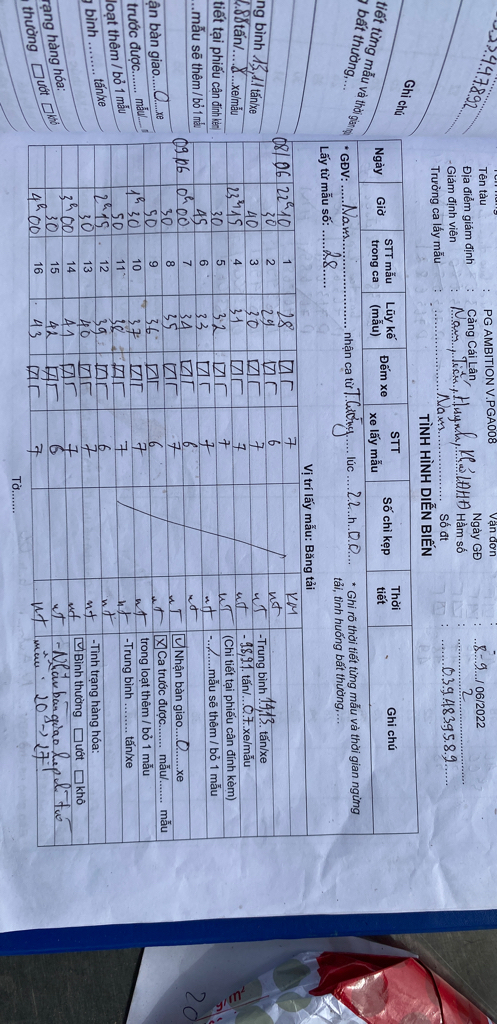 Tên tàu : PG AMBITION V.PGA008 Vận đơn : -
Địa điểm giám định : Cảng Cái Lân, Ngày GĐ : 8-9../06/2022
- Giám định viên : Nam, Tiến, Huynh, Hầm số : 2
Trưởng ca lấy mẫu : Nam Số đt : 0394839589
TÌNH HÌNH DIỄN BIẾN
Ngày Giờ STT mẫu trong ca Lũy kế (mẫu) Đếm xe STT xe lấy mẫu Số chì kẹp Thời tiết Ghi chú
* GĐV: Nam nhận ca từ T.Cường lúc 22 h 00
Lấy từ mẫu số: 28
* Ghi rõ thời tiết từng mẫu và thời gian ngừng tải, tình huống bất thường,...
Vị trí lấy mẫu: Băng tải
08/06 22h10 1 28 7 KM
30 2 29 6 nt
40 3 30 7 nt
23h15 4 31 7 nt
30 5 32 7 nt
45 6 33 7 nt
09/06 0h00 7 34 6 nt
30 8 35 7 nt
50 9 36 6 nt
1h30 10 37 7 nt
50 11 38 7 nt
2h15 12 39 6 nt
30 13 40 7 nt
3h00 14 41 7 nt
30 15 42 6 nt
4h00 16 43 7 nt
-Trung bình 14,13 tấn/xe
- tấn/ 07 xe/mẫu
(Chi tiết tại phiếu cân đính kèm)
-../...mẫu sẽ thêm / bỏ 1 mẫu
Nhận bàn giao 0 xe
Ca trước được....... mẫu/....... mẫu
trong loạt thêm / bỏ 1 mẫu
-Trung bình ........... tấn/xe
-Tình trạng hàng hóa:
Bình thường ướt khô
- Nhận bàn giao từ
mẫu: 20 -> 27
Tờ.......
0394947892
Ghi chú
tiết từng mẫu và thời gian
bất thường,...
ng bình 13,11 tấn/xe
tấn/ 8 xe/mẫu
tiết tại phiếu cân đính kèm)
...mẫu sẽ thêm / bỏ 1 mẫu
ận bàn giao 0 xe
trước được....... mẫu/
loạt thêm / bỏ 1 mẫu
g bình ......... tấn/xe
rạng hàng hóa:
thường ướt khô
20